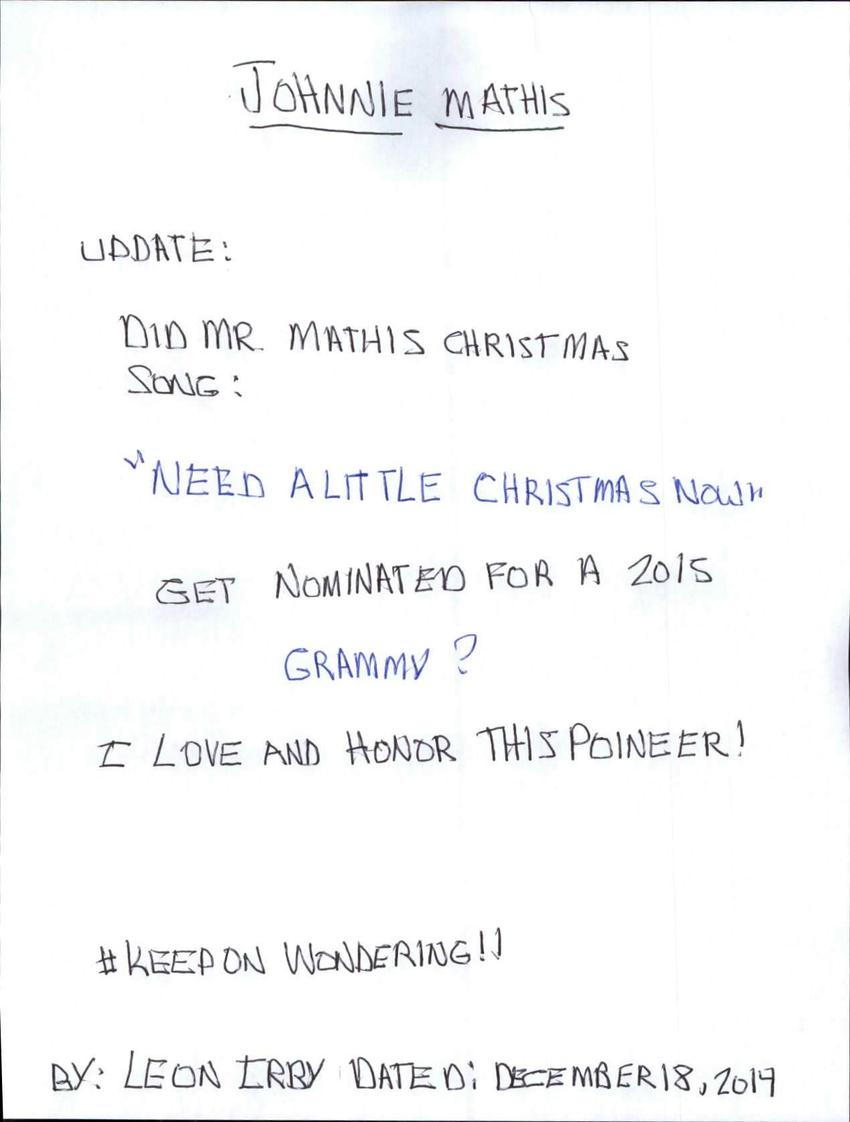 JOHNNIE MATHIS
UPDATE:
DID MR. MATHIS CHRISTMAS
SONG:
"NEED A LITTLE CHRISTMAS NOW"
GET NOMINATED FOR A 2015
GRAMMY?
I LOVE AND HONOR THIS POINEER!
#KEEP ON WONDERING!!
BY: LEON IRBY DATED: DECEMBER 18, 2014